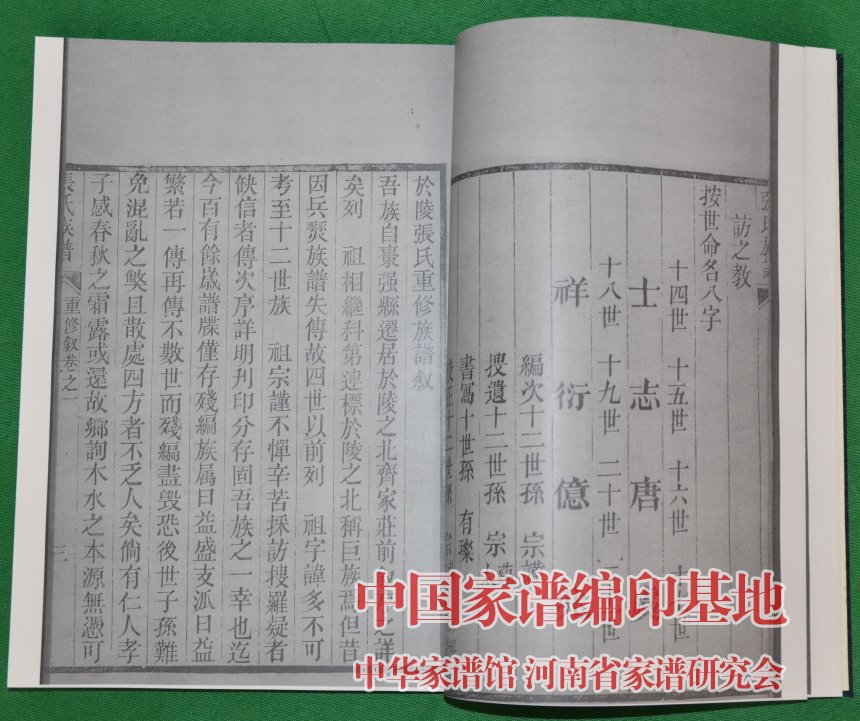 張氏族譜
訪之教
按世命名八字
十四世 十五世 十六世
士 志 唐
十八世 十九世 二十世
祥 衍 億
編次十二世孫 宗
搜遺十二世孫 宗
書寫十世孫 有璨
校正十二世孫 宗
於陵張氏重修族譜叙
吾族自棗强縣遷居於陵之北齊家莊前
矣列 祖相繼科第連標於陵之北稱巨族焉但昔
因兵燹族譜失傳故四世以前列 祖字諱多不可
考至十二世族 祖宗謹不憚辛苦採訪搜羅疑者
缺信者傳次序詳明刋印分存固吾族之一幸也迄
今百有餘歲譜牒僅存殘編族属日益盛支派日益
繁若一傳再傳不數世而殘編盡毁恐後世子孫難
免混亂之獘且散處四方者不乏人矣倘有仁人孝
子感春秋之霜露或還故鄉詢木水之本源無憑可
張氏族譜 重修叙卷之一 三
中国家谱编印基地
中华家谱馆 河南省家谱研究会